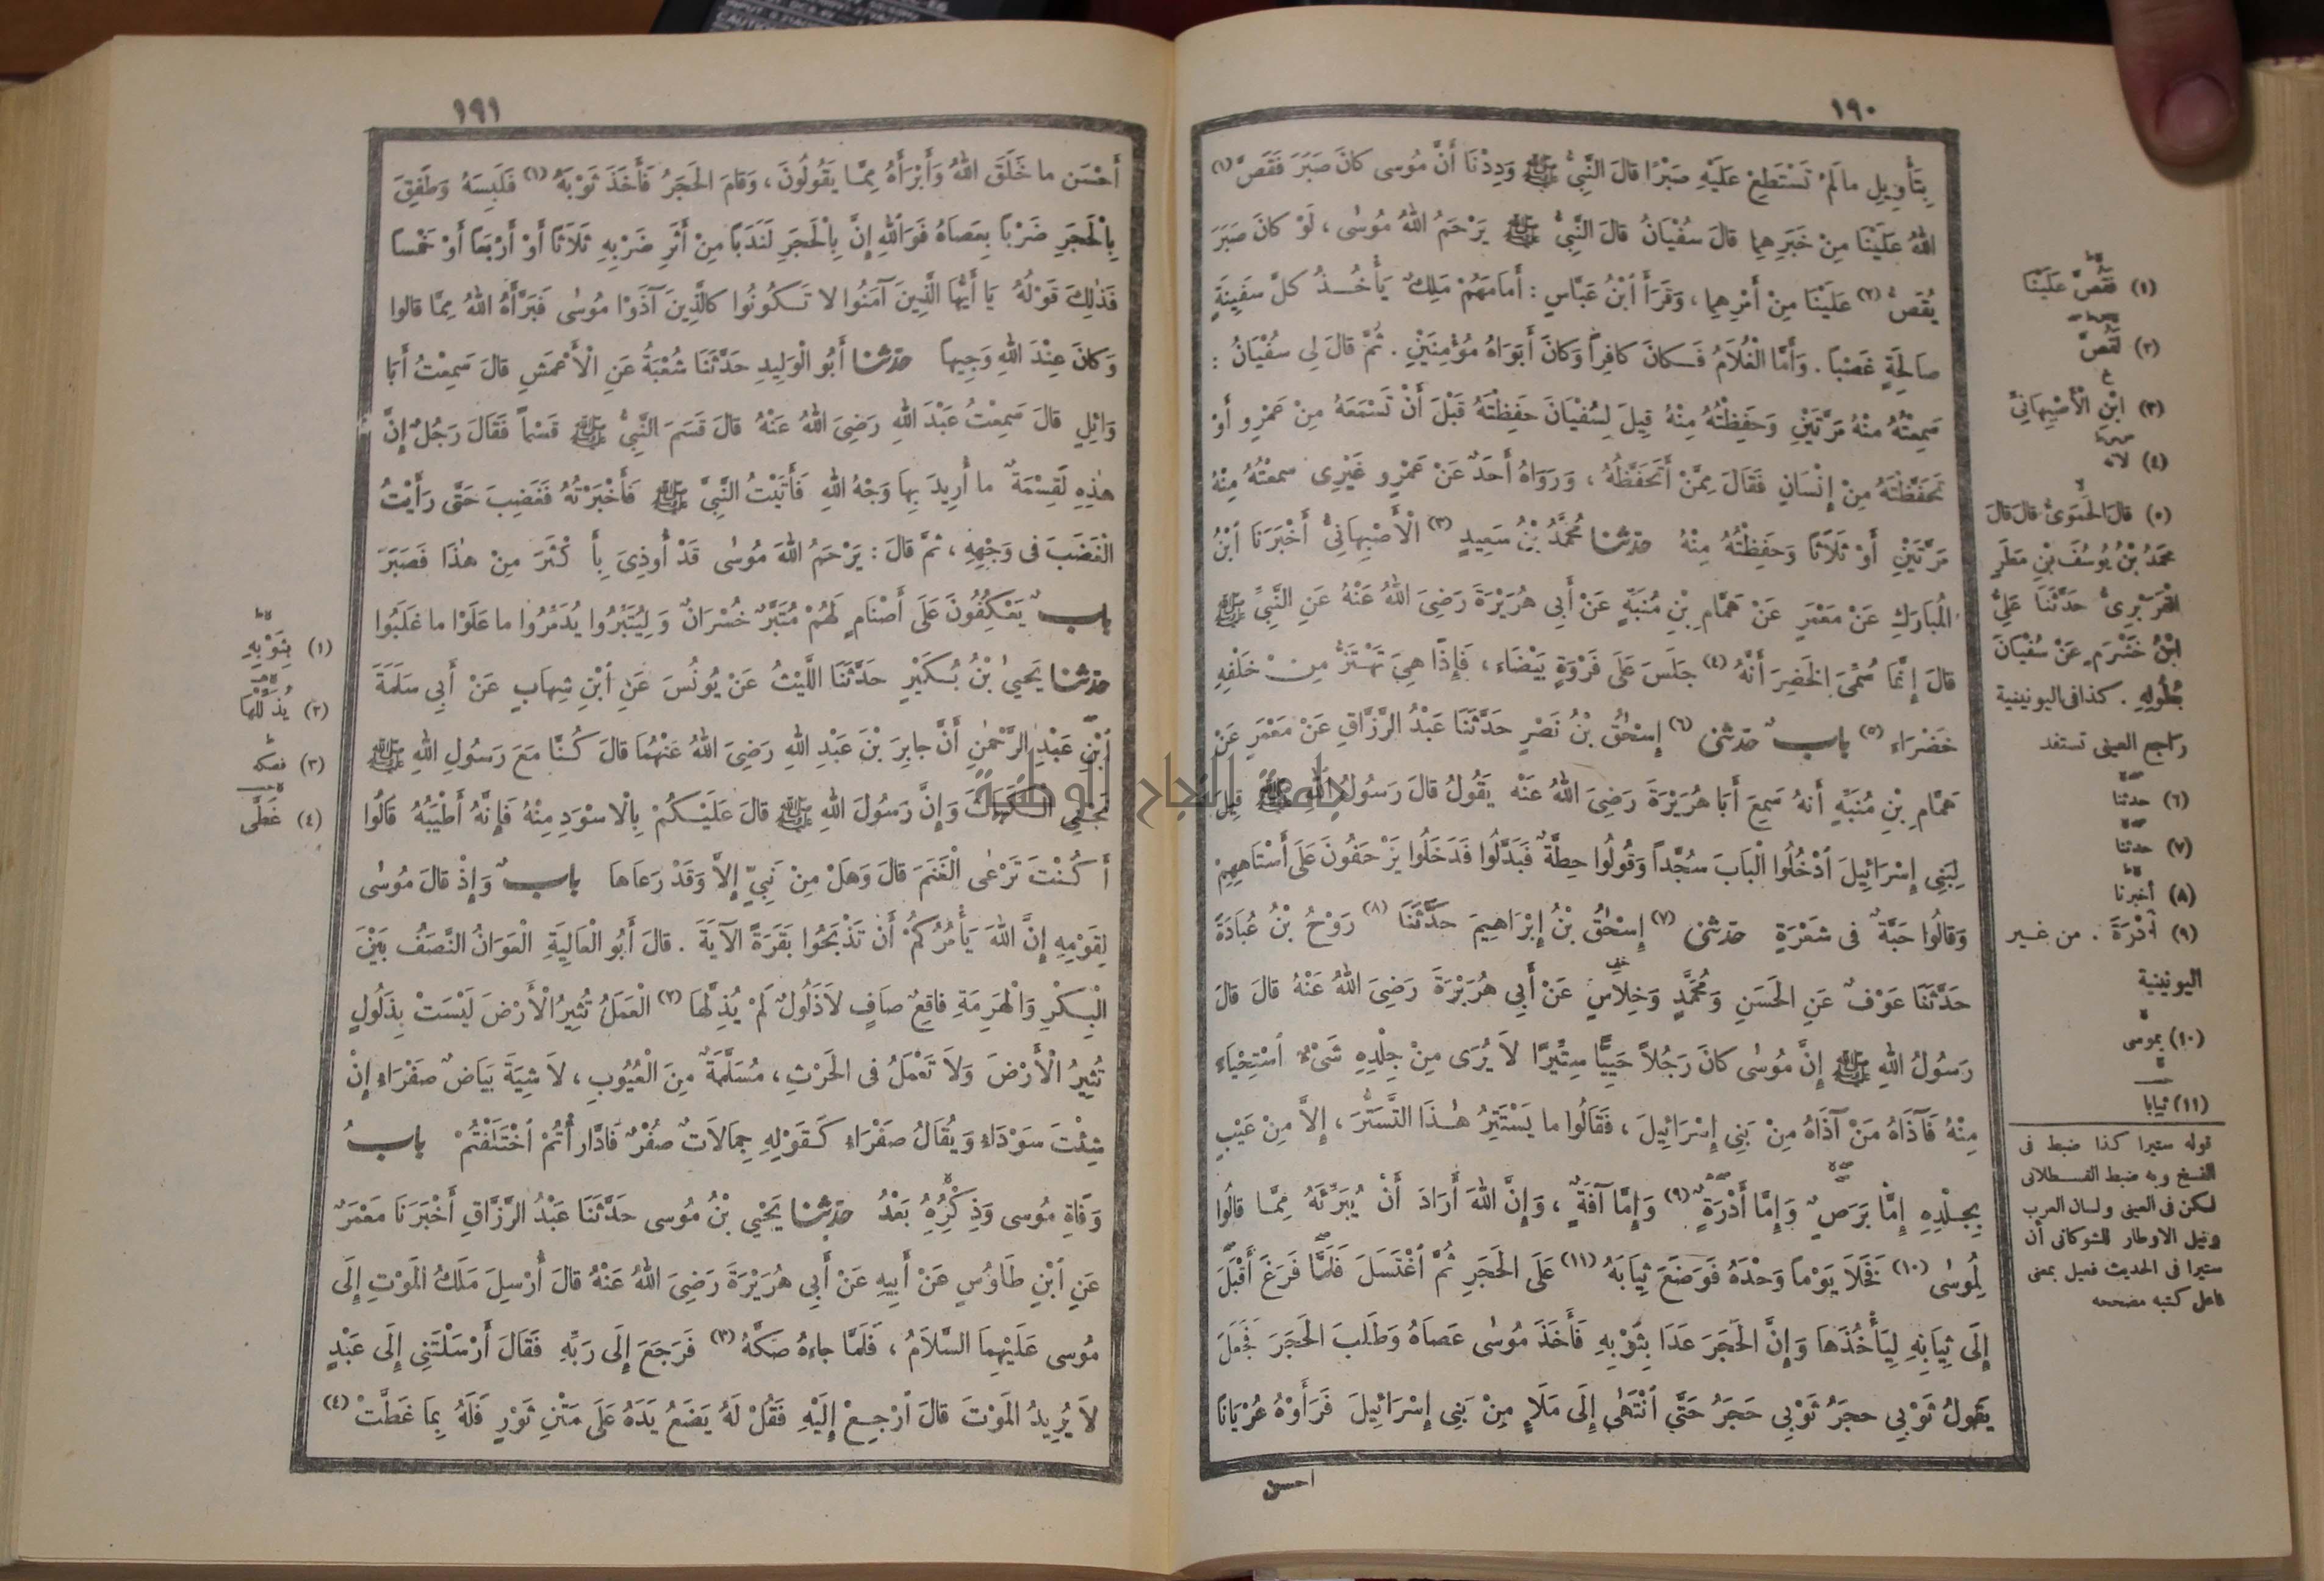 ١٩٠
بِتَأْوِيلِ مالَمْ تَسْتَطِعْ عَلَيْهِ صَبْرًا قالَ النَّبِيُّ ﷺ وَدِدْنَا أَنَّ مُوسى كانَ صَبَرَ فَقَصَّ (١)
اللهُ عَلَيْنَا مِنْ خَبَرِهِما قالَ سُفْيَانُ قالَ النَّبِيُّ ﷺ يَرْحَمُ اللهُ مُوسٰى ، لَوْ كانَ صَبَرَ
يُقَصُّ (٢) عَلَيْنَا مِنْ أَمْرِهِما ، وَقَرَأَ ٱبْنُ عَبَّاسٍ : أَمامَهُمْ مَلِكٌ يَأْخُذُ كلَّ سَفِينَةٍ
صَالِحَةٍ غَصْباً . وَأَمَّا الْغُلاَمُ فَكانَ كافِراً وَكانَ أَبَوَاهُ مُؤْمِنَيْنِ . ثُمَّ قالَ لِي سُفْيَانُ :
سَمِعْتُهُ مِنْهُ مَرَّتَيْنِ وَحَفِظْتُهُ مِنْهُ قِيلَ لِسُفْيَانَ حَفِظْتَهُ قَبْلَ أَنْ تَسْمَعَهُ مِنْ عَمْرٍو أَوْ
تَحَفَّظْتَهُ مِنْ إِنْسَانٍ فَقَالَ مِمَّنْ أَتَحَفَّظُهُ ، وَرَوَاهُ أَحَدٌ عَنْ عَمْرٍو غَيْرِى سمعْتُهُ مِنْهُ
مَرَّتَيْنِ أَوْ ثَلاَثًا وَحَفِظْتُهُ مِنْهُ حدثنا مُحَمَّدُ بْنُ سَعِيدٍ (٣) الْأَصْبِهَانِيُّ أَخْبَرَنَا ٱبْنُ
الْمُبَارَكِ عَنْ مَعْمَرٍ عَنْ هَمَّامِ بْنِ مُنَبِّهٍ عَنْ أَبِي هُرَيْرَةَ رَضِىَ اللهُ عَنْهُ عَنِ النَّبِيِّ ﷺ
قالَ إِنَّمَا سُمِّىَ الخَضِرَ أَنَّهُ (٤) جَلَسَ عَلَى فَرْوَةٍ بَيْضَاءَ ، فَإِذَا هِيَ تَهْتَزُّ مِنْ خَلْفِهِ
خَضْرَاءَ (٥) باب حدثنى (٦) إِسْحٰقُ بْنُ نَصْرٍ حَدَّثَنَا عَبْدُ الرَّزَّاقِ عَنْ مَعْمَرٍ عَنْ
هَمَّامِ بْنِ مُنَبِّهٍ أَنهُ سَمِعَ أَبَا هُرَيْرَةَ رَضِىَ اللهُ عَنْهُ يَقُولُ قالَ رَسُولُ اللهِ ﷺ قِيلَ
لِبَنِي إِسْرَائِيلَ ٱدْخُلُوا الْبَابَ سُجَّداً وَقُولُوا حِطَّةٌ فَبَدَّلُوا فَدَخَلُوا يَزْحَفُونَ عَلَى أَسْتَاهِهِمْ
وَقالُوا حَبَّةٌ فى شَعْرَةٍ حدثنى (٧) إِسْحٰقُ بْنُ إِبْرَاهِيمَ حَدَّثَنَا (٨) رَوْحُ بْنُ عُبَادَةَ
حَدَّثَنَا عَوْفٌ عَنِ الحَسَنِ وَمُحَمَّدٍ وَخِلاَسٍ عَنْ أَبِي هُرَيْرَةَ رَضِىَ اللهُ عَنْهُ قالَ قالَ
رَسُولُ اللهِ ﷺ إِنَّ مُوسٰى كانَ رَجُلاً حَيِيًّا سِتِّيرًا لاَ يُرَى مِنْ جِلْدِهِ شَىْءٌ ٱسْتِحْيَاءً
مِنْهُ فَآذَاهُ مَنْ آذَاهُ مِنْ بَنِى إِسْرَائِيلَ ، فَقَالُوا ما يَسْتَتِرُ هٰذَا التَّسَتُّرَ ، إِلاَّ مِنْ عَيْبٍ
بِجِلْدِهِ إِمَّا بَرَصٌ وَإِمَّا أُدْرَةٌ (٩) وَإِمَّا آفَةٌ ، وَإِنَّ اللهَ أَرَادَ أَنْ يُبَرِّئَهُ مِمَّا قالُوا
لِمُوسٰى (١٠) فَخَلاَ يَوْماً وَحْدَهُ فَوَضَعَ ثِيَابَهُ (١١) عَلَى الحَجَرِ ثُمَّ ٱغْتَسَلَ فَلَمَّا فَرَغَ أَقْبَلَ
إِلَى ثِيَابِهِ لِيَأْخُذَهَا وَإِنَّ الحَجَرَ عَدَا بِثَوْبِهِ فَأَخَذَ مُوسٰى عَصَاهُ وَطَلَبَ الحَجَرَ فَجَعَلَ
يَقُولُ ثَوْبِي حجَرُ ثَوْبِي حَجَرُ حَتَّى ٱنْتَهٰى إِلَى مَلَإٍ مِنْ بَنِى إِسْرَائِيلَ فَرَأَوْهُ عُرْيَانًا
احسن
(١) فَقُصَّ عَلَيْنَا
(٢) لَقُصَّ
(٣) ابْنِ الْأَصْبِهَانِيِّ
(٤) لانه
(٥) قالَ الحَمَوِىُّ قال قالَ
محمَّدُ بْنُ يُوسُفَ بْنِ مَطَرٍ
الْفَرَبْرِىُّ حَدَّثَنَا عَلِيُّ
ابْنُ خَشْرَمٍ عَنْ سُفْيَانَ
بِطُولِهِ . كذا فى اليونينية
راجع العينى تستفد
(٦) حدثنا
(٧) حدثنا
(٨) أخبرنا
(٩) أَدَرَةٌ . من غير
اليونينية
(١٠) بموسى
(١١) ثيابا
قوله ستيرا كذا ضبط فى
النسخ وبه ضبط القسطلانى
لكن فى العينى ولسان العرب
ونيل الاوطار للشوكانى أن
ستيرا فى الحديث فعيل بمعنى
فاعل كتبه مصححه
١٩١
أَحْسَنَ ما خَلَقَ اللهُ وَأَبْرَأَهُ مِمَّا يَقُولُونَ ، وَقامَ الحَجَرُ فَأَخَذَ ثَوْبَهُ (١) فَلَبِسَهُ وَطَفِقَ
بِالْحَجَرِ ضَرْباً بِعَصَاهُ فَوَ اللهِ إِنَّ بِالْحَجَرِ لَنَدَبًا مِنْ أَثَرِ ضَرْبِهِ ثَلاَثًا أَوْ أَرْبَعًا أَوْ خَمْساً
فَذٰلِكَ قَوْلُهُ يَا أَيُّهَا الَّذِينَ آمَنُوا لا تَكُونُوا كالَّذِينَ آذَوْا مُوسٰى فَبَرَّأَهُ اللهُ مِمَّا قالوا
وَكانَ عِنْدَ اللهِ وَجِيها حدثنا أَبُو الْوَلِيدِ حَدَّثَنَا شُعْبَةُ عَنِ الْأَعْمَشِ قالَ سَمِعْتُ أَبَا
وَائِلٍ قالَ سَمِعْتُ عَبْدَ اللهِ رَضِىَ اللهُ عَنْهُ قالَ قَسَمَ النَّبِيُّ ﷺ قَسْماً فَقَالَ رَجُلٌ إِنَّ
هٰذِهِ لَقِسْمَةٌ ما أُرِيدَ بِهَا وَجْهُ اللهِ فَأَتَيْتُ النَّبِيَّ ﷺ فَأَخْبَرْتُهُ فَغَضِبَ حَتَّى رَأَيْتُ
الْغَضَبَ فى وَجْهِهِ ، ثمَّ قالَ : يَرْحَمُ اللهَ مُوسٰى قَدْ أُوذِىَ بِأَ كْثَرَ مِنْ هٰذَا فَصَبَرَ
باب يَعْكُفُونَ عَلَى أَصْنَامٍ لَهُمْ مُتَبَّرٌ خُسْرَانٌ وَلِيُتَبِّرُوا يُدَمِّرُوا ما عَلَوْا ما غَلَبُوا
حدثنا يَحْيىٰ بْنُ بُكَيْرٍ حَدَّثَنَا اللَّيْثُ عَنْ يُونُسَ عَنِ ٱبْنِ شِهَابٍ عَنْ أَبِي سَلَمَةَ
ٱبْنِ عَبْدِ الرَّحْمٰنِ أَنَّ جابِرَ بْنَ عَبْدِ اللهِ رَضِىَ اللهُ عَنْهُمَا قالَ كُنَّا مَعَ رَسُولِ اللهِ ﷺ
نَجْنِي الْكَبَاثَ وَإِنَّ رَسُولَ اللهِ ﷺ قالَ عَلَيْكُمْ بِالْاسْوَدِ مِنْهُ فَإِنَّهُ أَطْيَبُهُ قَالُوا
أَكُنْتَ تَرْعٰى الْغَنَمَ قالَ وَهَلْ مِنْ نَبِيٍّ إِلاَّ وَقَدْ رَعَاها باب وَإِذْ قالَ مُوسٰى
لِقَوْمِهِ إِنَّ اللهَ يَأْمُرُكُمْ أَنْ تَذْبَحُوا بَقَرَةً الآيَةَ . قالَ أَبُو الْعَالِيَةِ الْعَوَانُ النَّصَفُ بَيْنَ
الْبِكْرِ وَالْهَرِمَةِ فاقِعٌ صَافٍ لاَذَلُولٌ لَمْ يُذِلَّهَا (٢) الْعَمَلُ تُثِيرُ الْأَرْضَ لَيْسَتْ بِذَلُولٍ
تُثِيرُ الْأَرْضَ وَلاَ تَعْمَلُ فى الحَرْثِ ، مُسَلَّمَةٌ مِنَ الْعُيُوبِ ، لاَ شِيَةَ بَيَاضٌ صَفْرَاءُ إِنْ
شِئْتَ سَوْدَاءُ وَيُقَالُ صَفْرَاءُ كَقَوْلِهِ جِمَالاَتٌ صُفْرٌ فَادَّارَأْتُمْ ٱخْتَلَفْتُمْ بابُ
وَفَاةِ مُوسى وَذِكْرُهُ بَعْدُ حدثنا يَحْيٰي بْنُ مُوسى حَدَّثَنَا عَبْدُ الرَّزَّاقِ أَخْبَرَنَا مَعْمَرٌ
عَنِ ٱبْنِ طَاوُسٍ عَنْ أَبِيهِ عَنْ أَبِي هُرَيْرَةَ رَضِىَ اللهُ عَنْهُ قالَ أُرْسِلَ مَلَكُ المَوْتِ إِلَى
مُوسى عَلَيْهِمَا السَّلاَمُ ، فَلَمَّا جاءهُ صَكَّهُ (٣) فَرَجَعَ إِلَى رَبِّهِ فَقَالَ أَرْسَلْتَنِى إِلَى عَبْدٍ
لاَ يُرِيدُ المَوْتَ قالَ ٱرْجِعْ إِلَيْهِ فَقُلْ لَهُ يَضَعُ يَدَهُ عَلَى مَتْنِ ثَوْرٍ فَلَهُ بِمَا غَطَّتْ (٤)
(١) بِثَوْبِهِ
(٢) يُذَلِّلْهَا
(٣) فصكه
(٤) غَطَّى
جامعة النجاح الوطنية